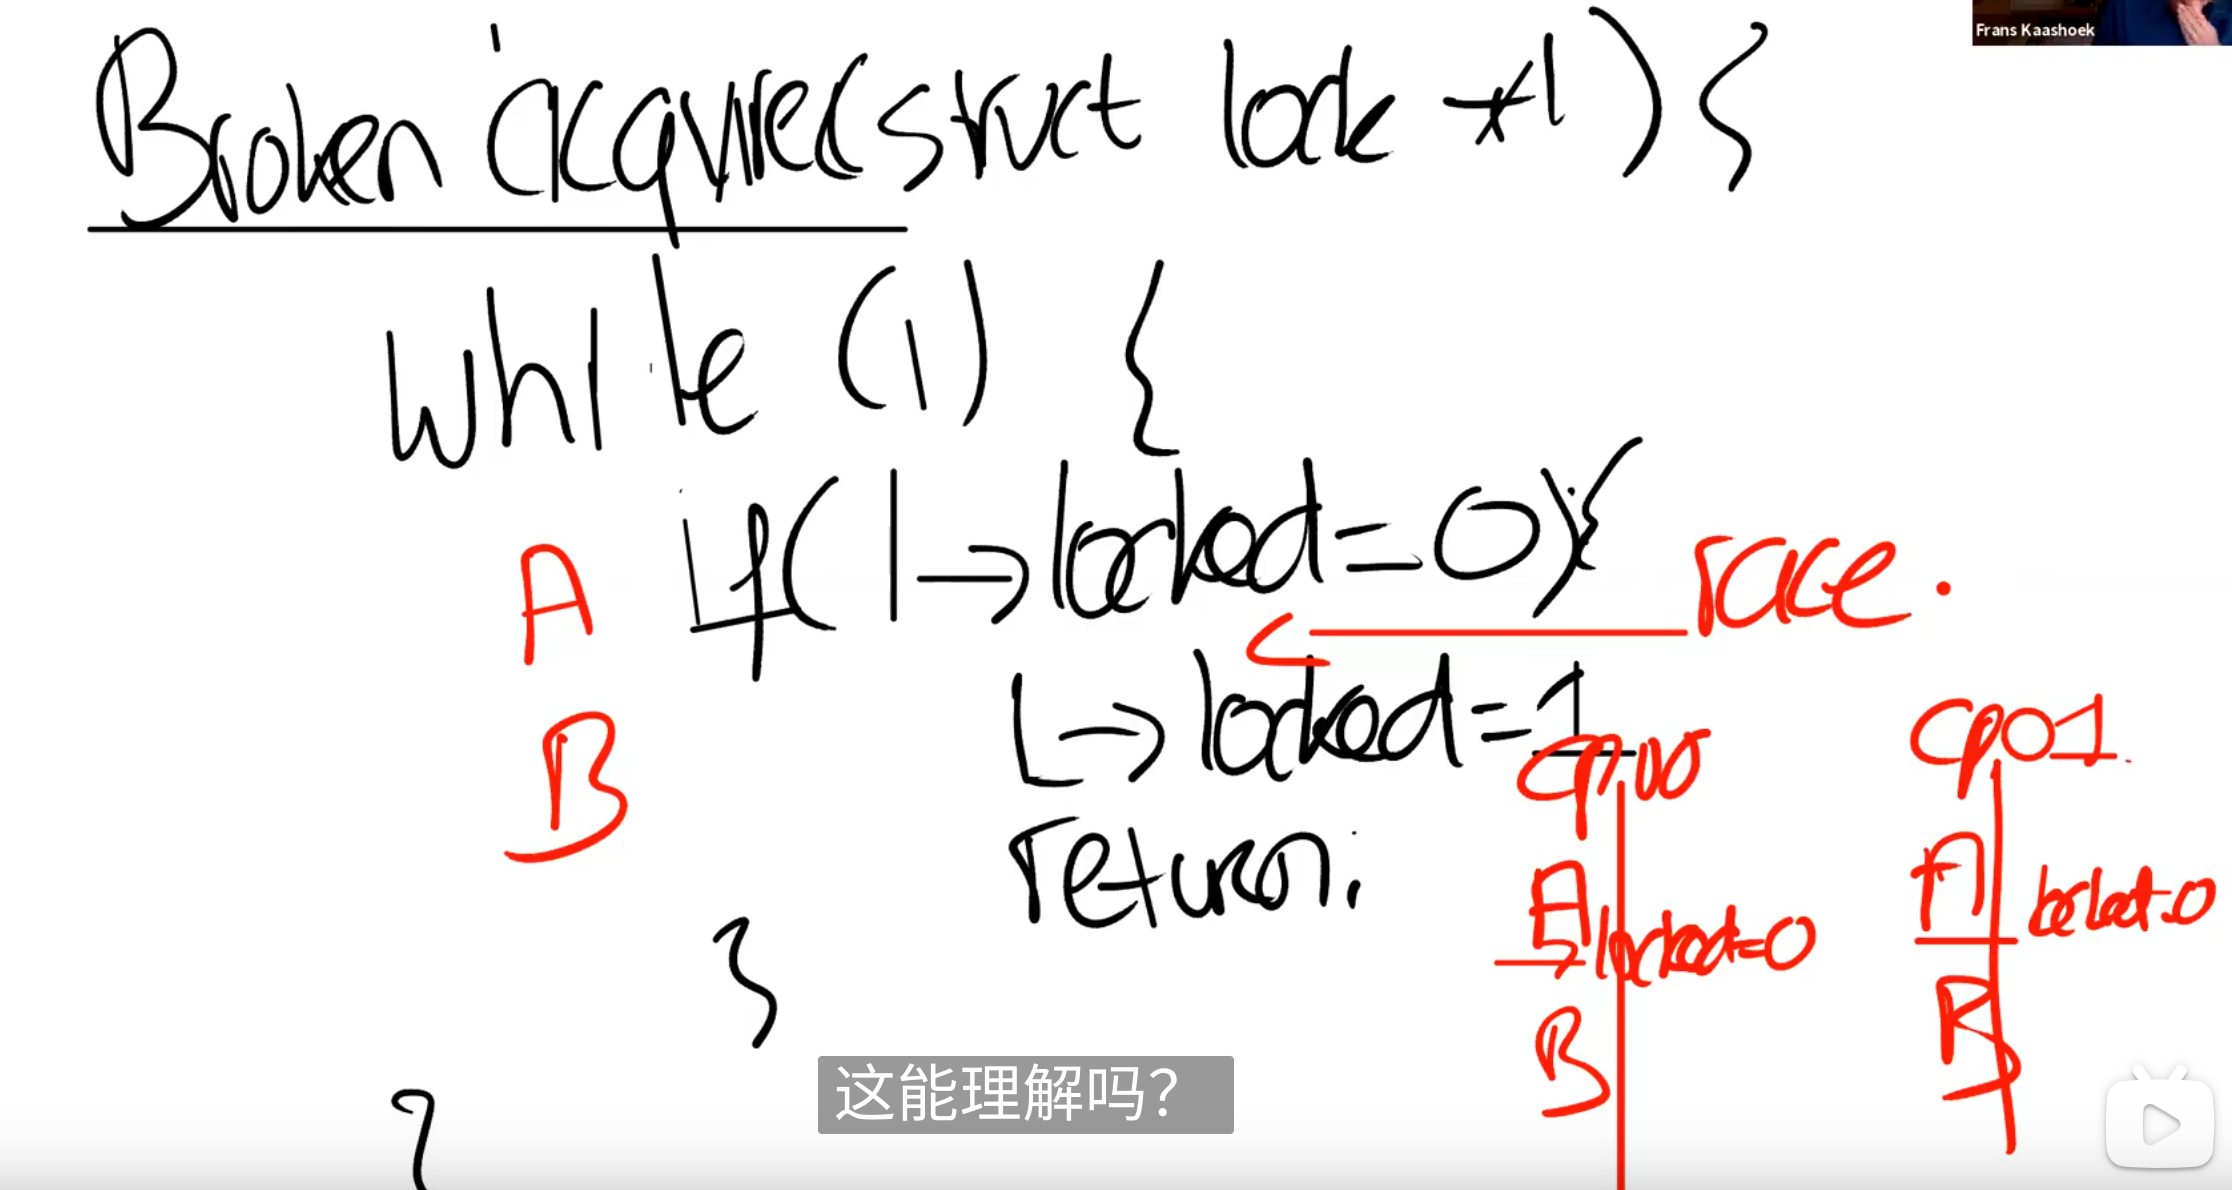 Frans Kaashoek
Broken acquire(struct lock *l) {
while (1) {
A if(l→locked=0){
race.
B L→locked=1
cpu0 cpu1
return;
A locked=0 A locked=0
}
B B
这能理解吗？
}